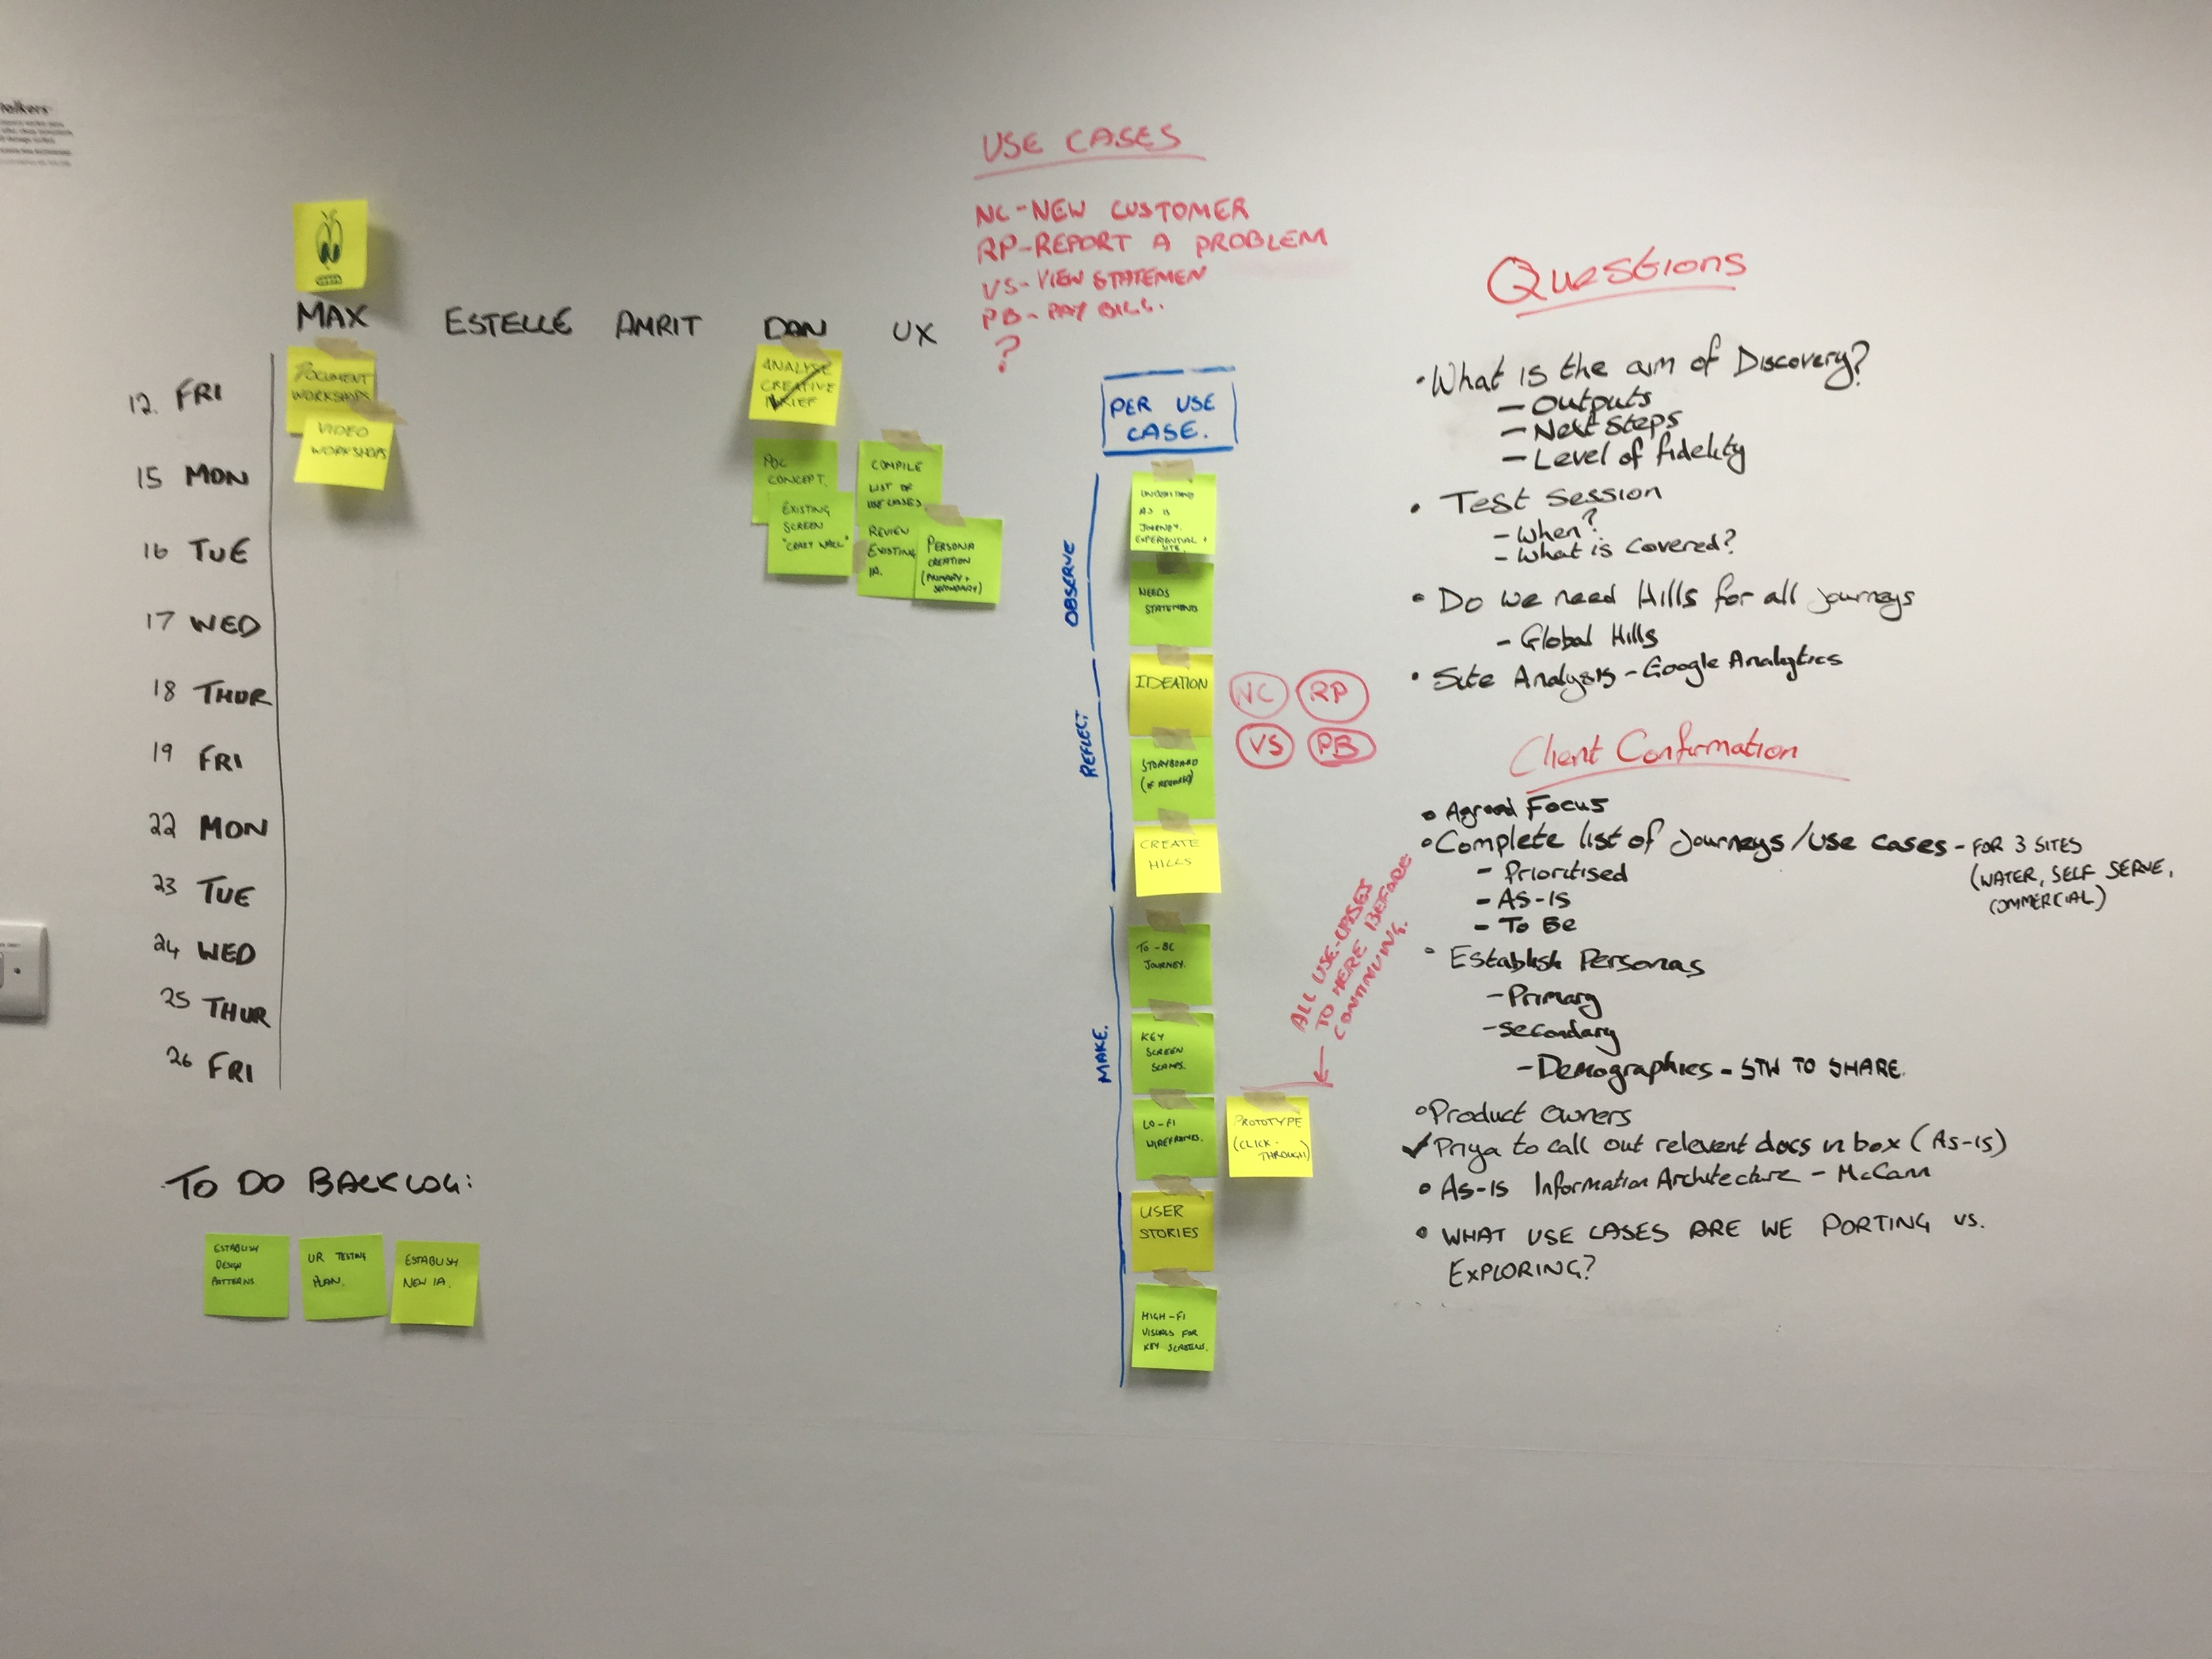 talkers
USE CASES
NC-NEW CUSTOMER
RP-REPORT A PROBLEM
VS-VIEW STATEMEN
PB-PAY BILL.
?
MAX
ESTELLE
AMRIT
DAN
UX
12. FRI
15 MON
16 TUE
17 WED
18 THUR
19 FRI
22 MON
23 TUE
24 WED
25 THUR
26 FRI
DOCUMENT
WORKSHOPS
VIDEO
WORKSHOPS
ANALYSE
CREATIVE
BRIEF
POC
CONCEPT.
EXISTING
SCREEN
"CRAZY WALL"
COMPILE
LIST OF
USE CASES
REVIEW
EXISTING
IA.
PERSONA
CREATION
(PRIMARY +
SECONDARY)
TO DO BACKLOG:
ESTABLISH
DESIGN
PATTERNS
UR TESTING
PLAN.
ESTABLISH
NEW IA.
PER USE
CASE.
OBSERVE
REFLECT
MAKE.
UNDERSTAND
AS IS
JOURNEY.
EXPERIENTIAL +
SITE.
NEEDS
STATEMENT
IDEATION
NC
RP
VS
PB
STORYBOARD
(IF REQUIRED)
CREATE
HILLS
TO-BE
JOURNEY.
KEY
SCREEN
SCAMPS.
LO-FI
WIREFRAMES.
PROTOTYPE
(CLICK-
THROUGH)
USER
STORIES
HIGH-FI
VISUALS FOR
KEY SCREENS.
ALL USE-CASES
TO HERE BEFORE
CONTINUING.
Questions
• What is the aim of Discovery?
- Outputs
- Next Steps
- Level of fidelity
• Test Session
- When?
- What is covered?
• Do we need Hills for all journeys
- Global Hills
• Site Analysis - Google Analytics
Client Confirmation
• Agreed Focus
• Complete list of Journeys/Use Cases - FOR 3 SITES
(WATER, SELF SERVE,
COMMERCIAL)
- Prioritised
- AS-IS
- To Be
• Establish Personas
- Primary
- Secondary
- Demographics - STW TO SHARE.
• Product Owners
✓ Priya to call out relevent docs in box (As-is)
• As-is Information Architecture - McCann
• WHAT USE CASES ARE WE PORTING VS.
EXPLORING?